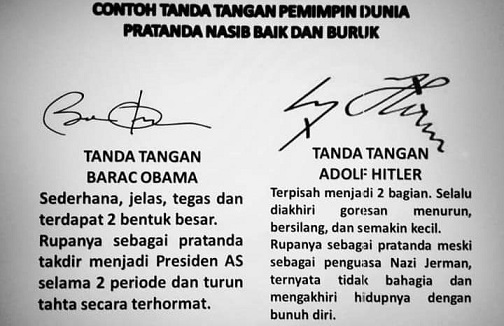 CONTOH TANDA TANGAN PEMIMPIN DUNIA
PRATANDA NASIB BAIK DAN BURUK
TANDA TANGAN
BARAC OBAMA
Sederhana, jelas, tegas dan
terdapat 2 bentuk besar.
Rupanya sebagai pratanda
takdir menjadi Presiden AS
selama 2 periode dan turun
tahta secara terhormat.
TANDA TANGAN
ADOLF HITLER
Terpisah menjadi 2 bagian. Selalu
diakhiri goresan menurun,
bersilang, dan semakin kecil.
Rupanya sebagai pratanda meski
sebagai penguasa Nazi Jerman,
ternyata tidak bahagia dan
mengakhiri hidupnya dengan
bunuh diri.